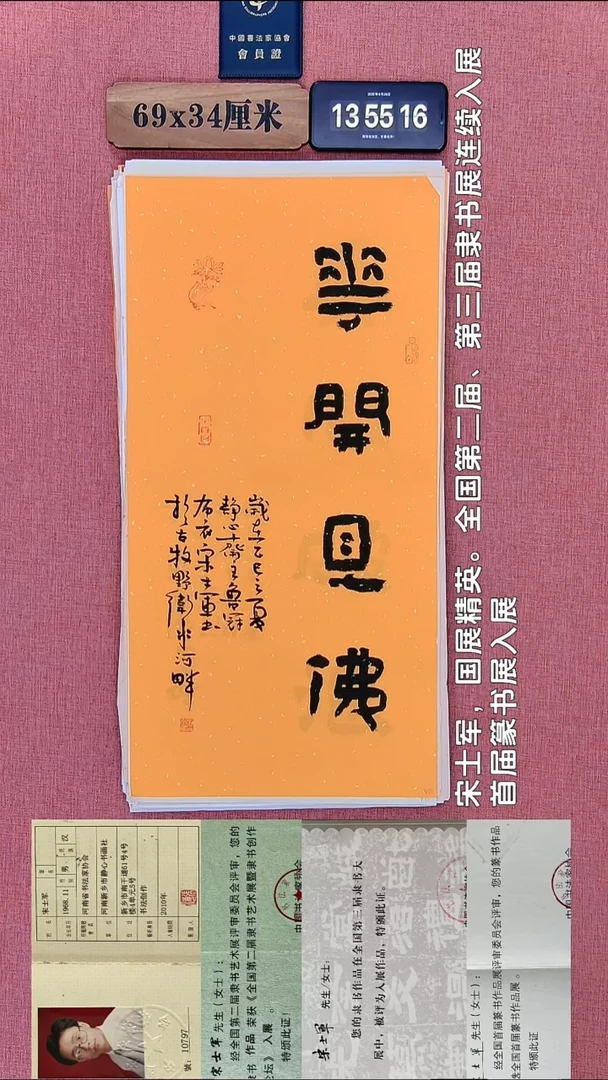 中國書法家協會
會員證
69x34厘米
13 55 16
回
佛
歲在乙巳之夏
布衣宋士軍書
於古牧野衛水河畔
宋士军，国展精英。全国第二届、第三届隶书展连续入展
首届篆书展入展
宋士军
男
汉
1968.11
河南省书法家协会
河南新乡市静心书画社
书法创作
2010年
號：10797
宋士军 先生（女士）：
经全国第二届隶书艺术展评审委员会评审，您的
隶书 作品 荣获《全国第二届隶书艺术展暨隶书创作
论坛》入展 。
特颁此证！
宋士军 先生/女士：
您的隶书作品在全国第三届隶书大
展中，被评为入展作品，特颁此证。
士军 先生（女士）：
经全国首届篆书作品展评审委员会评审，您的篆书作品
全国首届篆书作品展 。
特颁此证